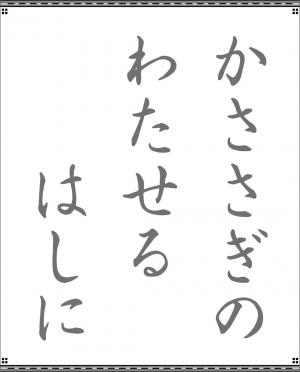 かささぎの
わたせる
はしに